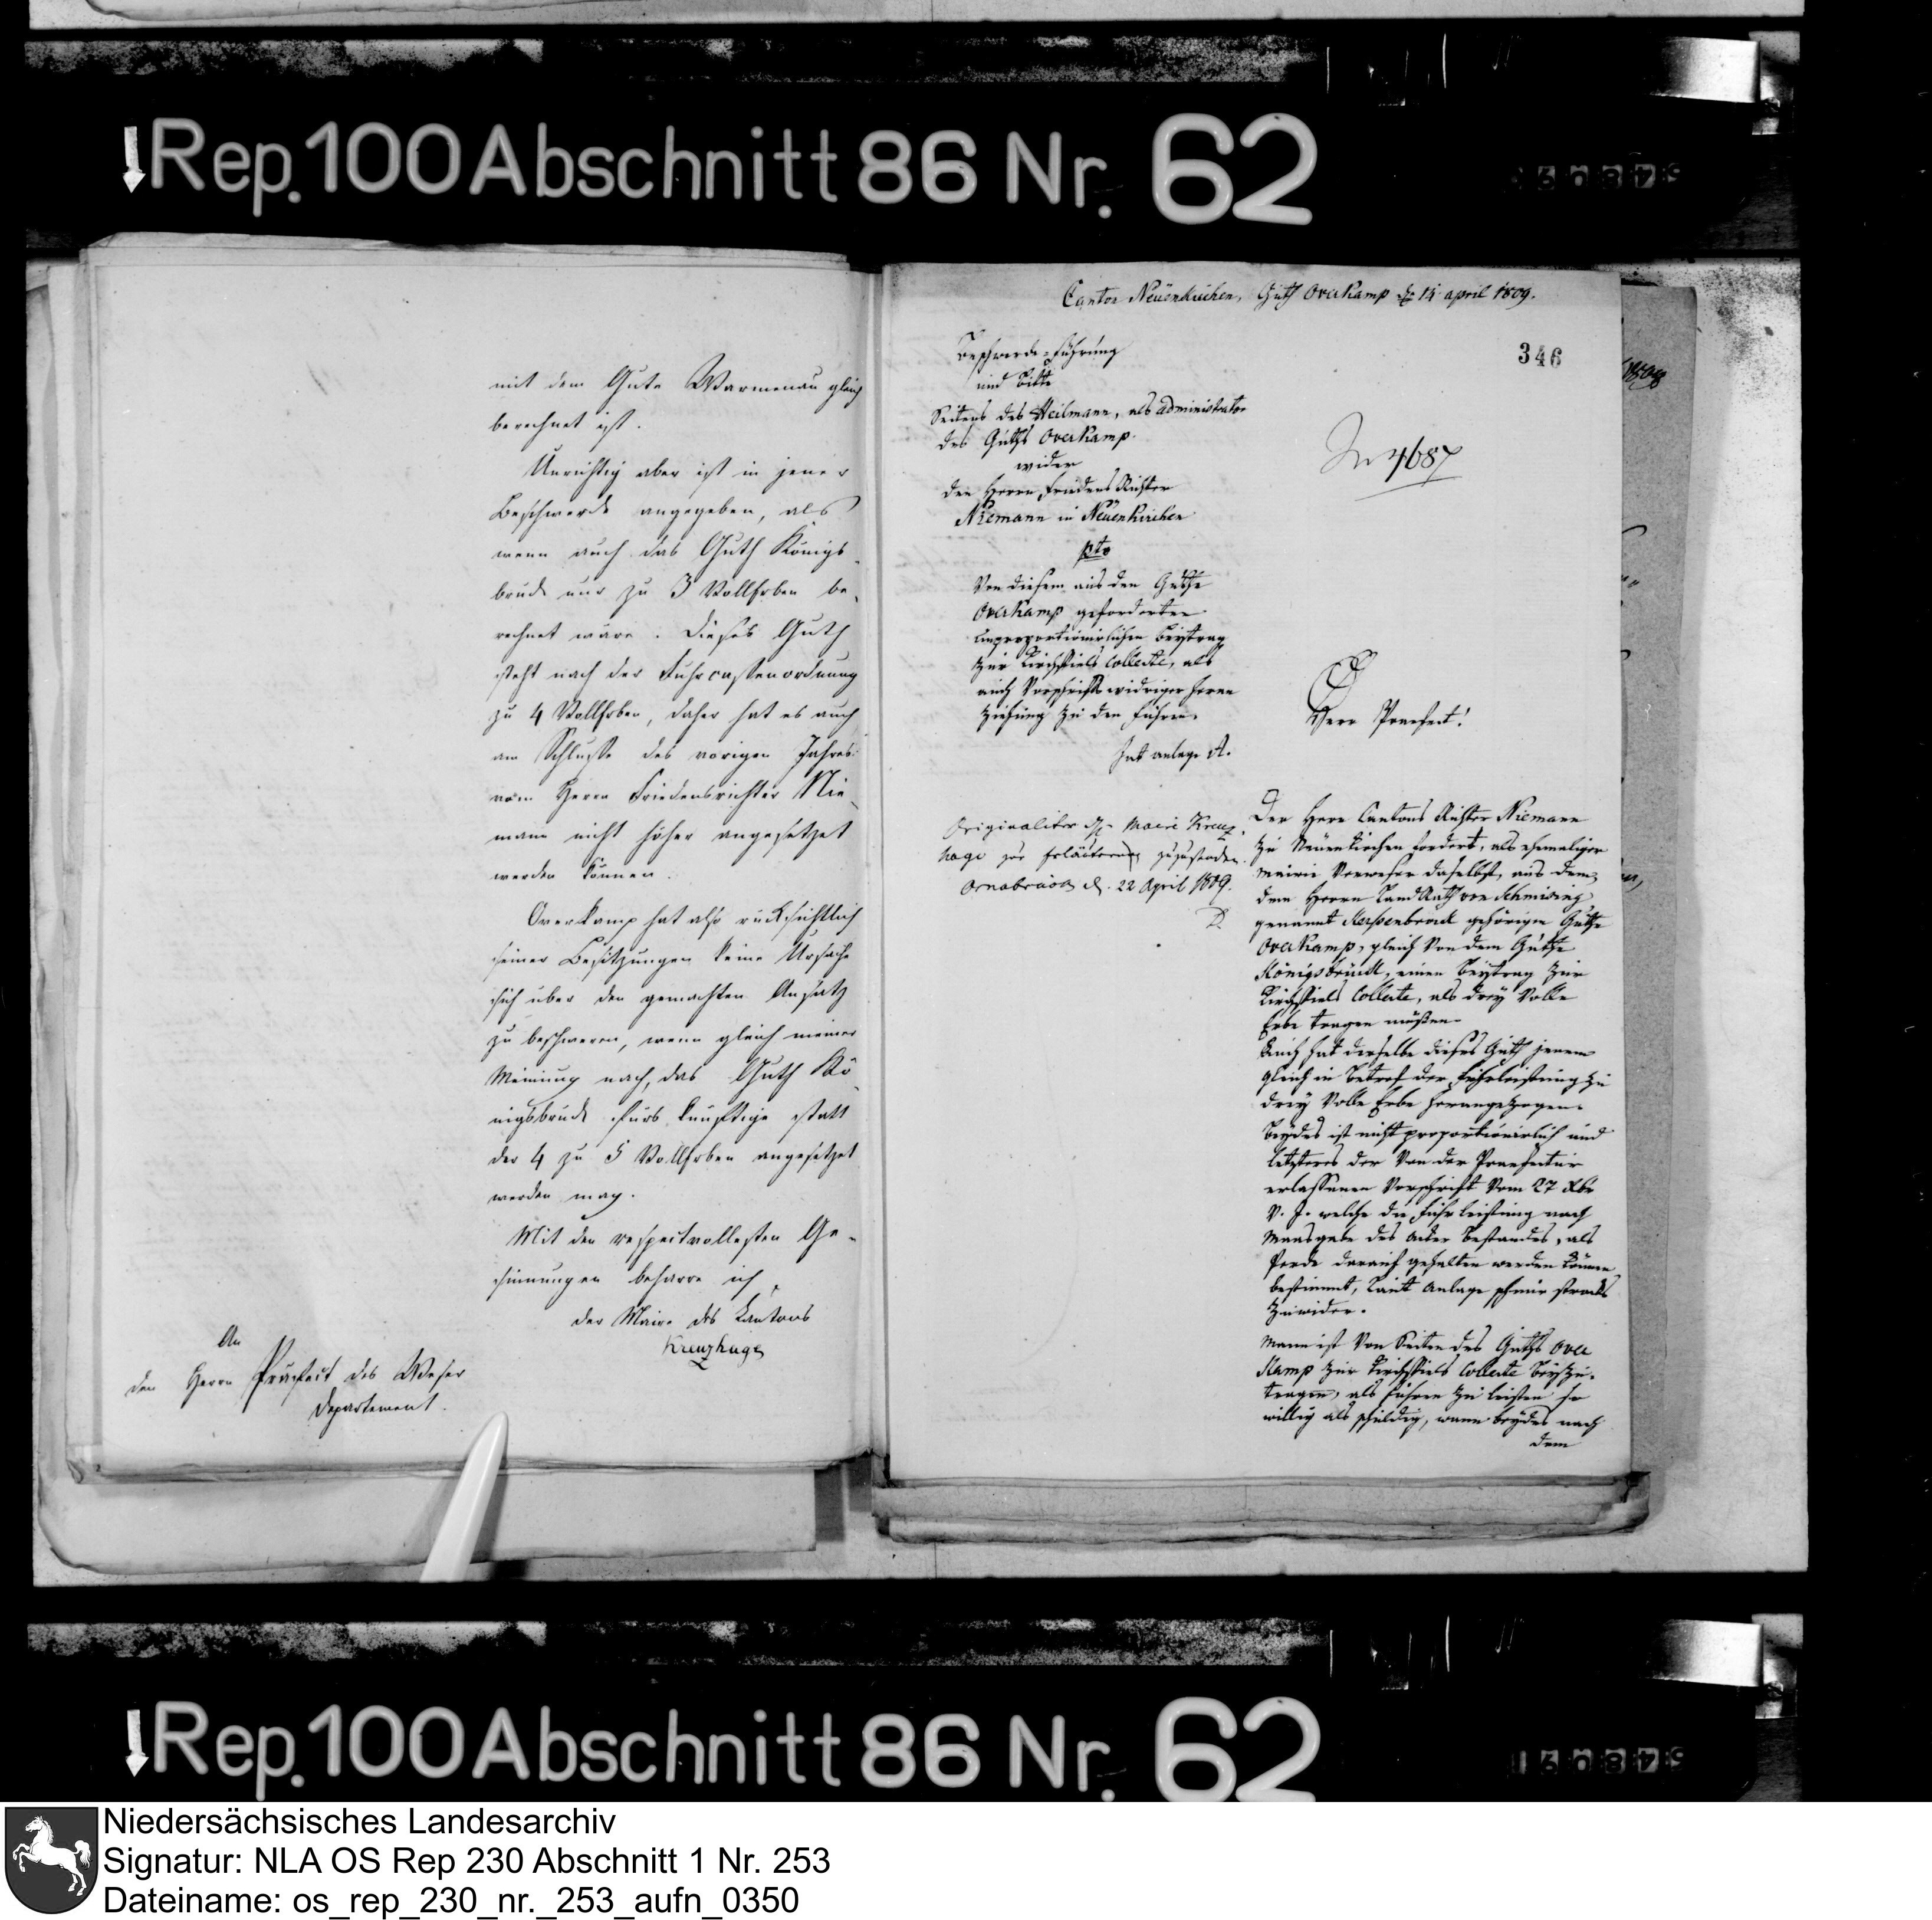 Rep. 100 Abschnitt 86 Nr. 62
mit dem Gute Warmenau gleich
berechnet ist.
Unrichtig aber ist in jener
Beschwerde angegeben, als
wenn auch das Guth Königs-
brück nur zu 3 Vollerben be-
rechnet wäre. Dieses Guth
steht nach der Fuhrcassenordnung
zu 4 Vollerben, daher hat es auch
am Schlusse des vorigen Jahres
vom Herrn Friedensrichter Nie-
mann nicht höher angesetzet
werden können.
Overkamp hat also rücksichtlich
seiner Besitzungen keine Ursache
sich über den gemachten Ansatz
zu beschweren, wenn gleich meiner
Meinung nach, das Guth Kö-
nigsbrück fürs künftige statt
der 4 zu 5 Vollerben angesetzet
werden mag.
Mit den respectvollesten Ge-
sinnungen beharre ich
der Maire des Kantons
Kreuzhage
An
den Herrn Präfect des Weser
Departement.
Canton Neüenkirchen, Guth Overkamp d 14 april 1809.
346
Beschwerde-Führung
und Bitte
Seitens des Heilmann, als administrator
des Guths Overkamp.
wider
den Herrn Friedens Richter
Niemann in Neüenkirchen
pto
Von diesem aus den Guthe
Overkamp geforderten
unproportionirlichen Beytrag
zur Kirchspiels Collecte, als
auch Vorschrifts widriger heran
ziehung zu den Fuhren.
hat anlage A.
4687
Herr Praefect!
Originaliter Maire Kreuz-
hage zur Erläuterung zuzustellen.
Osnabrück d. 22 April 1809.
Der Herr Cantons Richter Niemann
zu Neüenkirchen fordert, als ehemaliger
Mairie Verweser daselbst, aus dem,
dem Herrn Land Rath von Schmising
genannt Kerssenbrock gehörigen Guthe
Overkamp, gleich von dem Guthe
Königsbrück, einen Beytrag zur
Kirchspiels Collecte, als drey Volle
Erbe tragen müßen.
Auch hat derselbe dieses Guth jenem
gleich in Betref der Fuhrleistung zu
drey Volle Erbe herangezogen.
Beydes ist nicht proportionirlich und
letzteres der von der Praefectur
erlassenen Vorschrift vom 27 Xbr
v. J. welche die Fuhrleistung nach
Maasgabe des Acker Bestandes, als
Perde darauf gehalten werden können
bestimmt, laut Anlage schnur stracks
zuwider.
Mann ist von Seiten des Guths Over
Kamp zur Kirchspiels Collecte beyzu-
tragen, als Fuhren zu leisten so
willig als schuldig, wann beydes nach
dem
Rep. 100 Abschnitt 86 Nr. 62
Niedersächsisches Landesarchiv
Signatur: NLA OS Rep 230 Abschnitt 1 Nr. 253
Dateiname: os_rep_230_nr._253_aufn_0350